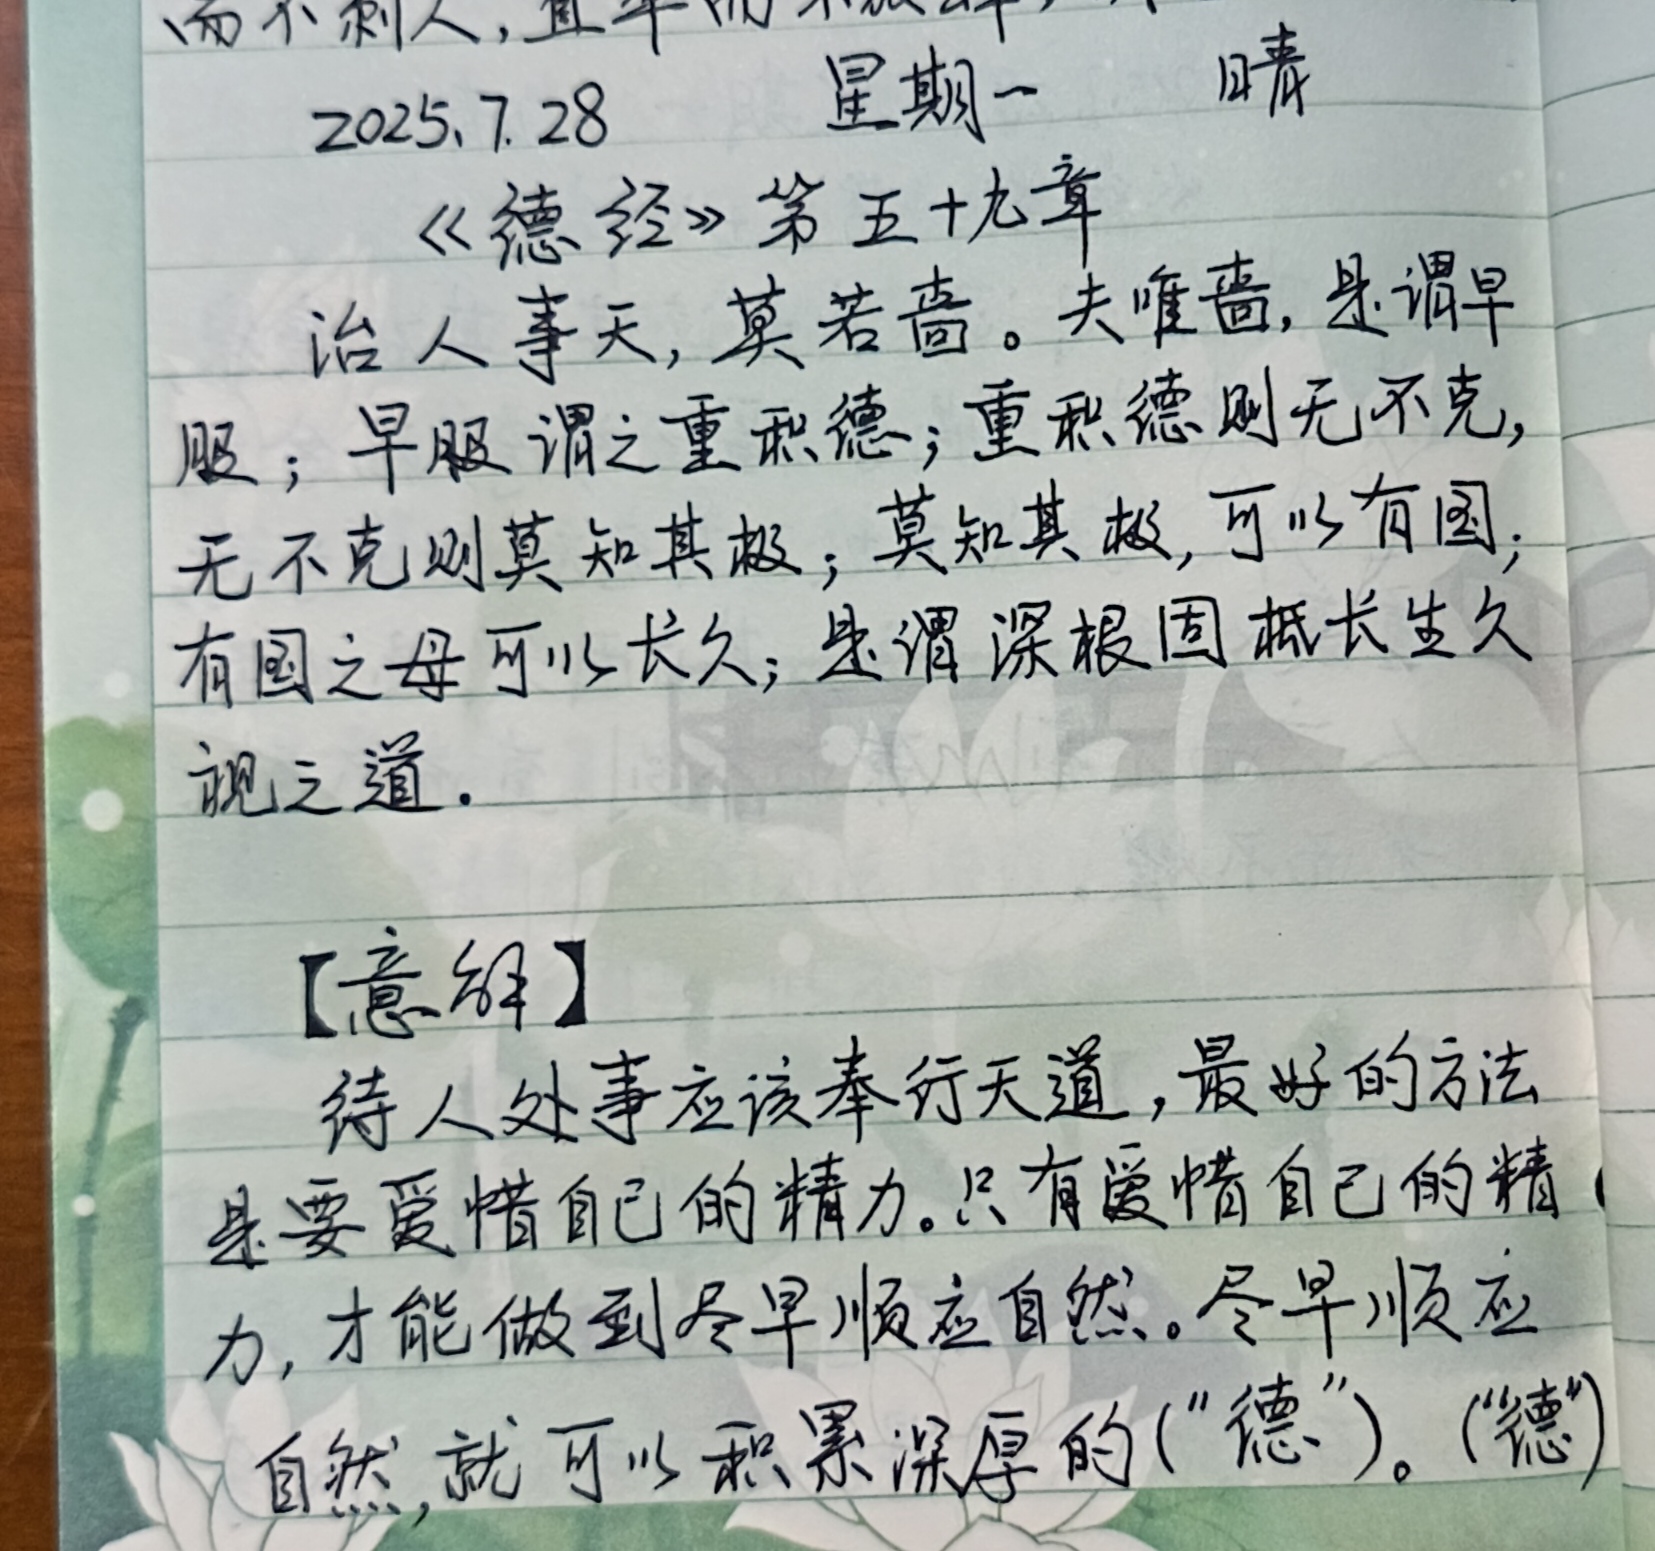 而不刺人,直率而不
2025.7.28 星期一 晴
《德经》第五十九章
治人事天,莫若啬。夫唯啬,是谓早
服;早服谓之重积德;重积德则无不克,
无不克则莫知其极;莫知其极,可以有国;
有国之母可以长久;是谓深根固柢长生久
视之道.
【意解】
待人处事应该奉行天道,最好的方法
是要爱惜自己的精力。只有爱惜自己的精
力,才能做到尽早顺应自然。尽早顺应
自然,就可以积累深厚的("德")。("德")